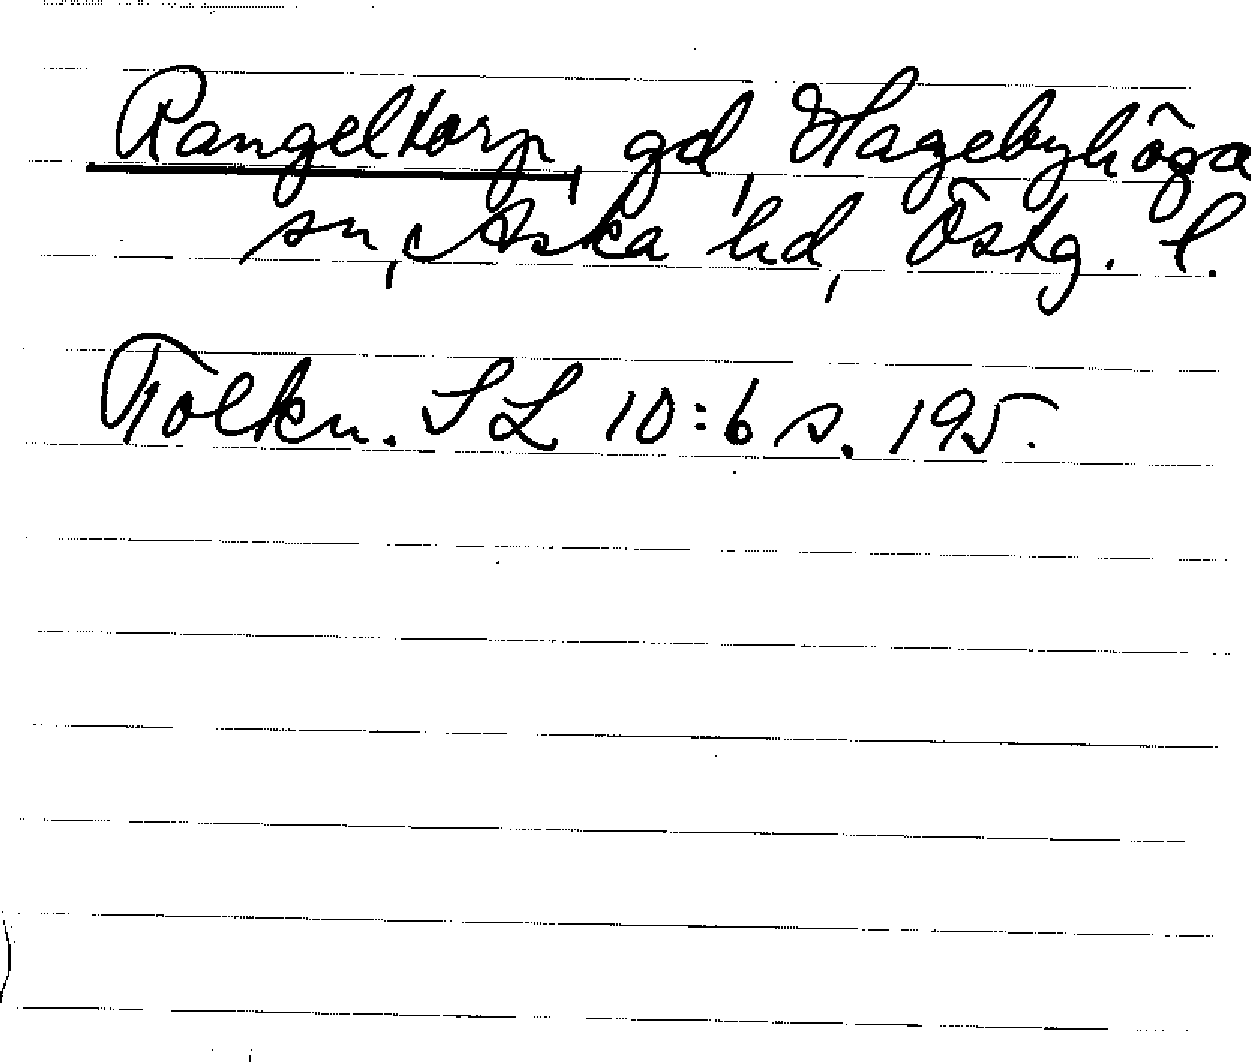 Rangeltorp, gd, Hagebyhöga
sn, Aska hd, Östg. l.
Tolkn. SL 10:6 s. 195.